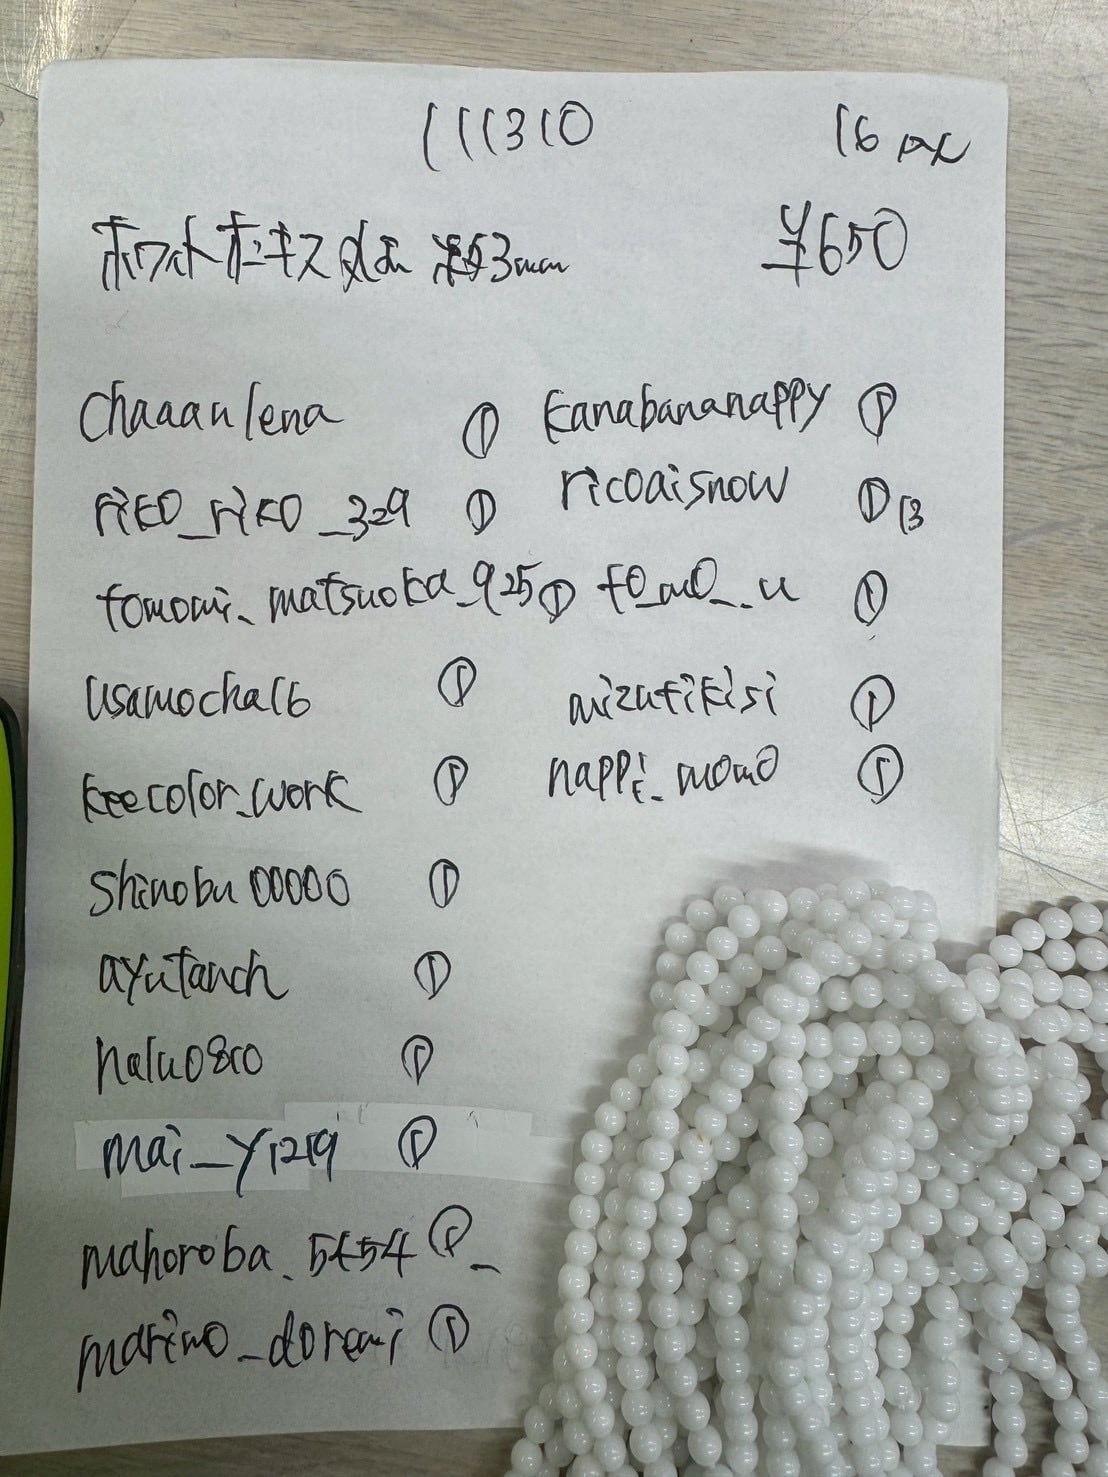 111310
16 pcs
ホワイトオニキス 丸玉 約3mm
¥650
chaaanlena ①
riko_riko_329 ①
tomomi_matsuoka_925 ①
usamocha16 ①
keecolor_work ①
shinobu00000 ①
ayutanch ①
halu0810 ①
mai_y1219 ①
mahoroba_5454 ①
marimo_doremi ①
kanabananappy ①
ricoaisnow ① 13
to_mo__u ①
mizutikisi ①
nappi_momo ①